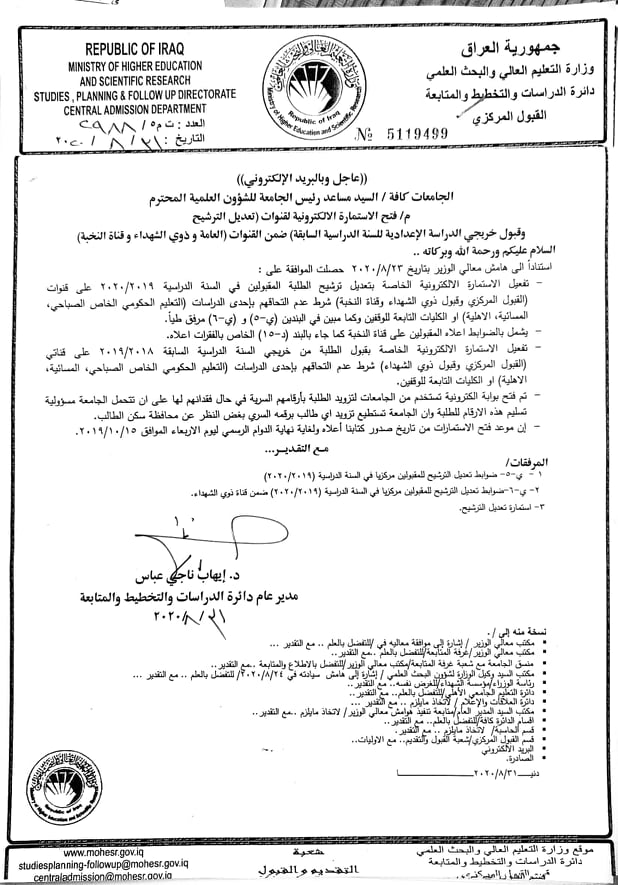 REPUBLIC OF IRAQ
MINISTRY OF HIGHER EDUCATION
AND SCIENTIFIC RESEARCH
STUDIES, PLANNING & FOLLOW UP DIRECTORATE
CENTRAL ADMISSION DEPARTMENT
العدد: ت م ٥/ ٢٩٨٨
التاريخ: ٢٠٢٠/٨/٣١
Republic of Iraq
Ministry of Higher Education and Scientific Research
№ 5119499
جمهورية العراق
وزارة التعليم العالي والبحث العلمي
دائرة الدراسات والتخطيط والمتابعة
القبول المركزي
((عاجل وبالبريد الإلكتروني))
الجامعات كافة / السيد مساعد رئيس الجامعة للشؤون العلمية المحترم
م/ فتح الاستمارة الالكترونية لقنوات (تعديل الترشيح
وقبول خريجي الدراسة الإعدادية للسنة الدراسية السابقة) ضمن القنوات (العامة و ذوي الشهداء و قناة النخبة)
السلام عليكم ورحمة الله وبركاته ..
استناداً الى هامش معالي الوزير بتاريخ ٢٠٢٠/٨/٢٣ حصلت الموافقة على :
– تفعيل الاستمارة الالكترونية الخاصة بتعديل ترشيح الطلبة المقبولين في السنة الدراسية ٢٠٢٠/٢٠١٩ على قنوات
(القبول المركزي وقبول ذوي الشهداء وقناة النخبة) شرط عدم التحاقهم بإحدى الدراسات (التعليم الحكومي الخاص الصباحي،
المسائية، الاهلية) او الكليات التابعة للوقفين وكما مبين في البندين (ي-٥) و (ي-٦) مرفق طياً.
– يشمل بالضوابط اعلاه المقبولين على قناة النخبة كما جاء بالبند (د-١٥) الخاص بالفقرات اعلاه.
– تفعيل الاستمارة الالكترونية الخاصة بقبول الطلبة من خريجي السنة الدراسية السابقة ٢٠١٩/٢٠١٨ على قناتي
(القبول المركزي وقبول ذوي الشهداء) شرط عدم التحاقهم بإحدى الدراسات (التعليم الحكومي الخاص الصباحي، المسائية،
الاهلية) او الكليات التابعة للوقفين.
– تم فتح بوابة الكترونية تستخدم من الجامعات لتزويد الطلبة بأرقامهم السرية في حال فقدانهم لها على ان تتحمل الجامعة مسؤولية
تسليم هذه الارقام للطلبة وان الجامعة تستطيع تزويد اي طالب برقمه السري بغض النظر عن محافظة سكن الطالب.
– إن موعد فتح الاستمارات من تاريخ صدور كتابنا أعلاه ولغاية نهاية الدوام الرسمي ليوم الاربعاء الموافق ٢٠١٩/١٠/١٥.
مع التقدير...
المرفقات/
١ - ي-٥- ضوابط تعديل الترشيح للمقبولين مركزيا في السنة الدراسية (٢٠٢٠/٢٠١٩)
٢- ي-٦-ضوابط تعديل الترشيح للمقبولين مركزيا في السنة الدراسية (٢٠٢٠/٢٠١٩) ضمن قناة ذوي الشهداء.
٣- استمارة تعديل الترشيح.
د. إيهاب ناجي عباس
مدير عام دائرة الدراسات والتخطيط والمتابعة
٢٠٢٠/٨/٣١
نسخة منه إلى /.
مكتب معالي الوزير / إشارة إلى موافقة معاليه في /للتفضل بالعلم .. مع التقدير ...
مكتب معالي الوزير /غرفة المتابعة/للتفضل بالعلم ..مع التقدير..
منسق الجامعة مع شعبة غرفة المتابعة/مكتب معالي الوزير/للتفضل بالاطلاع والمتابعة ..مع التقدير..
مكتب السيد وكيل الوزارة لشؤون البحث العلمي / إشارة إلى هامش سيادته في ٢٠٢٠/٨/٢٤/ للتفضل بالعلم .. مع التقدير ...
رئاسة الوزراء/مؤسسة الشهداء/للغرض نفسه.. مع التقدير..
دائرة التعليم الجامعي الأهلي/للتفضل بالعلم.. مع التقدير..
دائرة العلاقات والإعلام / لاتخاذ مايلزم .. مع التقدير ...
مكتب السيد المدير العام/متابعة تنفيذ هوامش معالي الوزير / لاتخاذ مايلزم ..مع التقدير..
اقسام الدائرة كافة/للتفضل بالعلم.. مع التقدير..
قسم الحاسبة/ لاتخاذ مايلزم .. مع التقدير..
قسم القبول المركزي/شعبة القبول والتقديم.. مع الاوليات..
البريد الالكتروني
الصادرة.
دنيـ ٢٠٢٠/٨/٣١
www.mohesr.gov.iq
studiesplanning-followup@mohesr.gov.iq
centraladmission@mohesr.gov.iq
شعبة
التقديم والقبول
موقع وزارة التعليم العالي والبحث العلمي
دائرة الدراسات والتخطيط والمتابعة